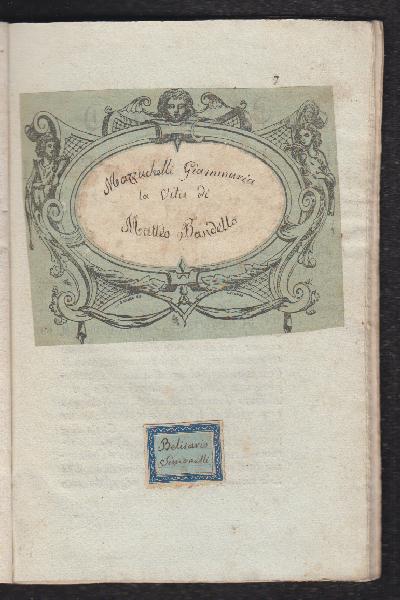 7
Mazzuchelli Giammaria
la Vita di
Matteo Bandello
Belisario
Simonelli